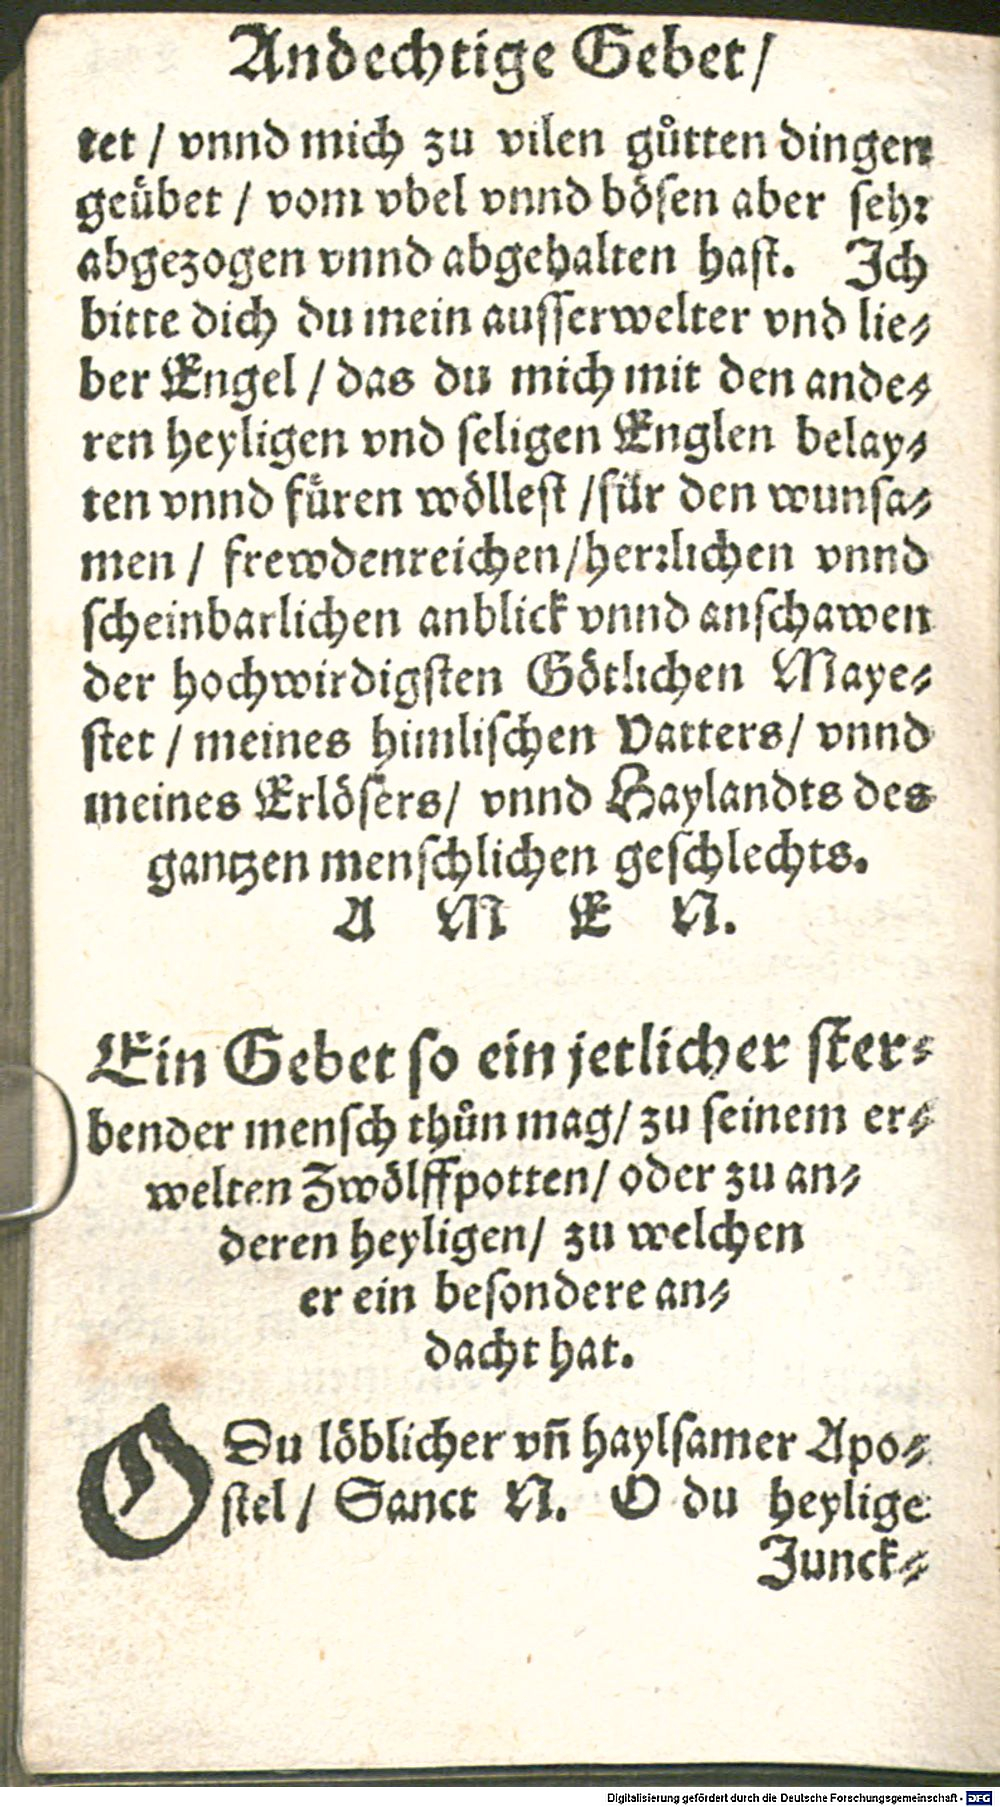 Andechtige Gebet/
tet / vnnd mich zu vilen guͦtten dingen
geübet / vom vbel vnnd bösen aber sehr
abgezogen vnnd abgehalten hast. Ich
bitte dich du mein ausserwelter vnd lie⸗
ber Engel / das du mich mit den ande⸗
ren heyligen vnd seligen Englen belay⸗
ten vnnd füren wöllest /für den wunsa⸗
men / frewdenreichen/herrlichen vnnd
scheinbarlichen anblick vnnd anschawen
der hochwirdigsten Götlichen Maye⸗
stet / meines himlischen Vatters/ vnnd
meines Erlösers/ vnnd Haylandts des
gantzen menschlichen geschlechts.
A M E N.
Ein Gebet so ein jetlicher ster⸗
bender mensch thuͦn mag/ zu seinem er⸗
welten Zwölffpotten/ oder zu an⸗
deren heyligen/ zu welchen
er ein besondere an⸗
dacht hat.
O Du löblicher vñ haylsamer Apo⸗
stel / Sanct N. O du heylige
Junck⸗
Digitalisierung gefördert durch die Deutsche Forschungsgemeinschaft - DFG